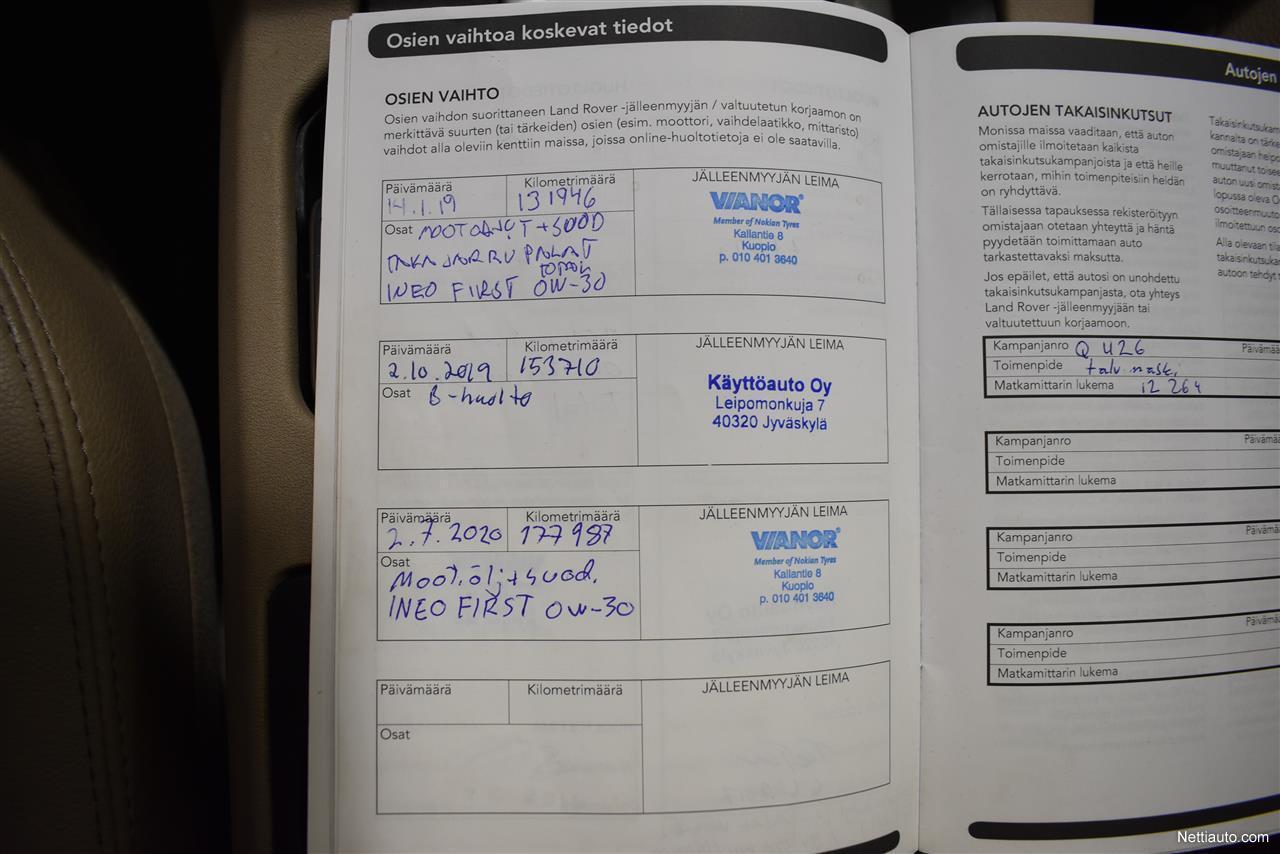 Osien vaihtoa koskevat tiedot
OSIEN VAIHTO
Osien vaihdon suorittaneen Land Rover -jälleenmyyjän / valtuutetun korjaamon on
merkittävä suurten (tai tärkeiden) osien (esim. moottori, vaihdelaatikko, mittaristo)
vaihdot alla oleviin kenttiin maissa, joissa online-huoltotietoja ei ole saatavilla.
Päivämäärä
Kilometrimäärä
JÄLLEENMYYJÄN LEIMA
14.1.19
131946
Osat
+SUOD
TAKA JARRU PALAT
INEO FIRST 0W-30
VIANOR
Member of Nokian Tyres
Kallantie 8
Kuopio
p. 010 401 3640
Päivämäärä
Kilometrimäärä
JÄLLEENMYYJÄN LEIMA
2.10.2019
153710
Osat B-huolto
Käyttöauto Oy
Leipomonkuja 7
40320 Jyväskylä
Päivämäärä
Kilometrimäärä
JÄLLEENMYYJÄN LEIMA
2.7.2020
177987
Osat
Moot.ölj+suod.
INEO FIRST 0W-30
VIANOR
Member of Nokian Tyres
Kallantie 8
Kuopio
p. 010 401 3640
Päivämäärä
Kilometrimäärä
JÄLLEENMYYJÄN LEIMA
Osat
Autojen
AUTOJEN TAKAISINKUTSUT
Monissa maissa vaaditaan, että auton
omistajille ilmoitetaan kaikista
takaisinkutsukampanjoista ja että heille
kerrotaan, mihin toimenpiteisiin heidän
on ryhdyttävä.
Tällaisessa tapauksessa rekisteröityyn
omistajaan otetaan yhteyttä ja häntä
pyydetään toimittamaan auto
tarkastettavaksi maksutta.
Jos epäilet, että autosi on unohdettu
takaisinkutsukampanjasta, ota yhteys
Land Rover -jälleenmyyjään tai
valtuutettuun korjaamoon.
Takaisinkutsukam
kannalta on tärke
omistajaan helpo
muuttanut toisee
auton uusi omist
lopussa oleva O
osoitteenmuuto
ilmoitettuun oso
Alla olevaan tila
takaisinkutsuka
autoon tehdyt t
Kampanjanro Q426
Päivämää
Toimenpide
Matkamittarin lukema 12 264
Kampanjanro
Päivämää
Toimenpide
Matkamittarin lukema
Kampanjanro
Päivämää
Toimenpide
Matkamittarin lukema
Kampanjanro
Päivämää
Toimenpide
Matkamittarin lukema
Nettiauto.com